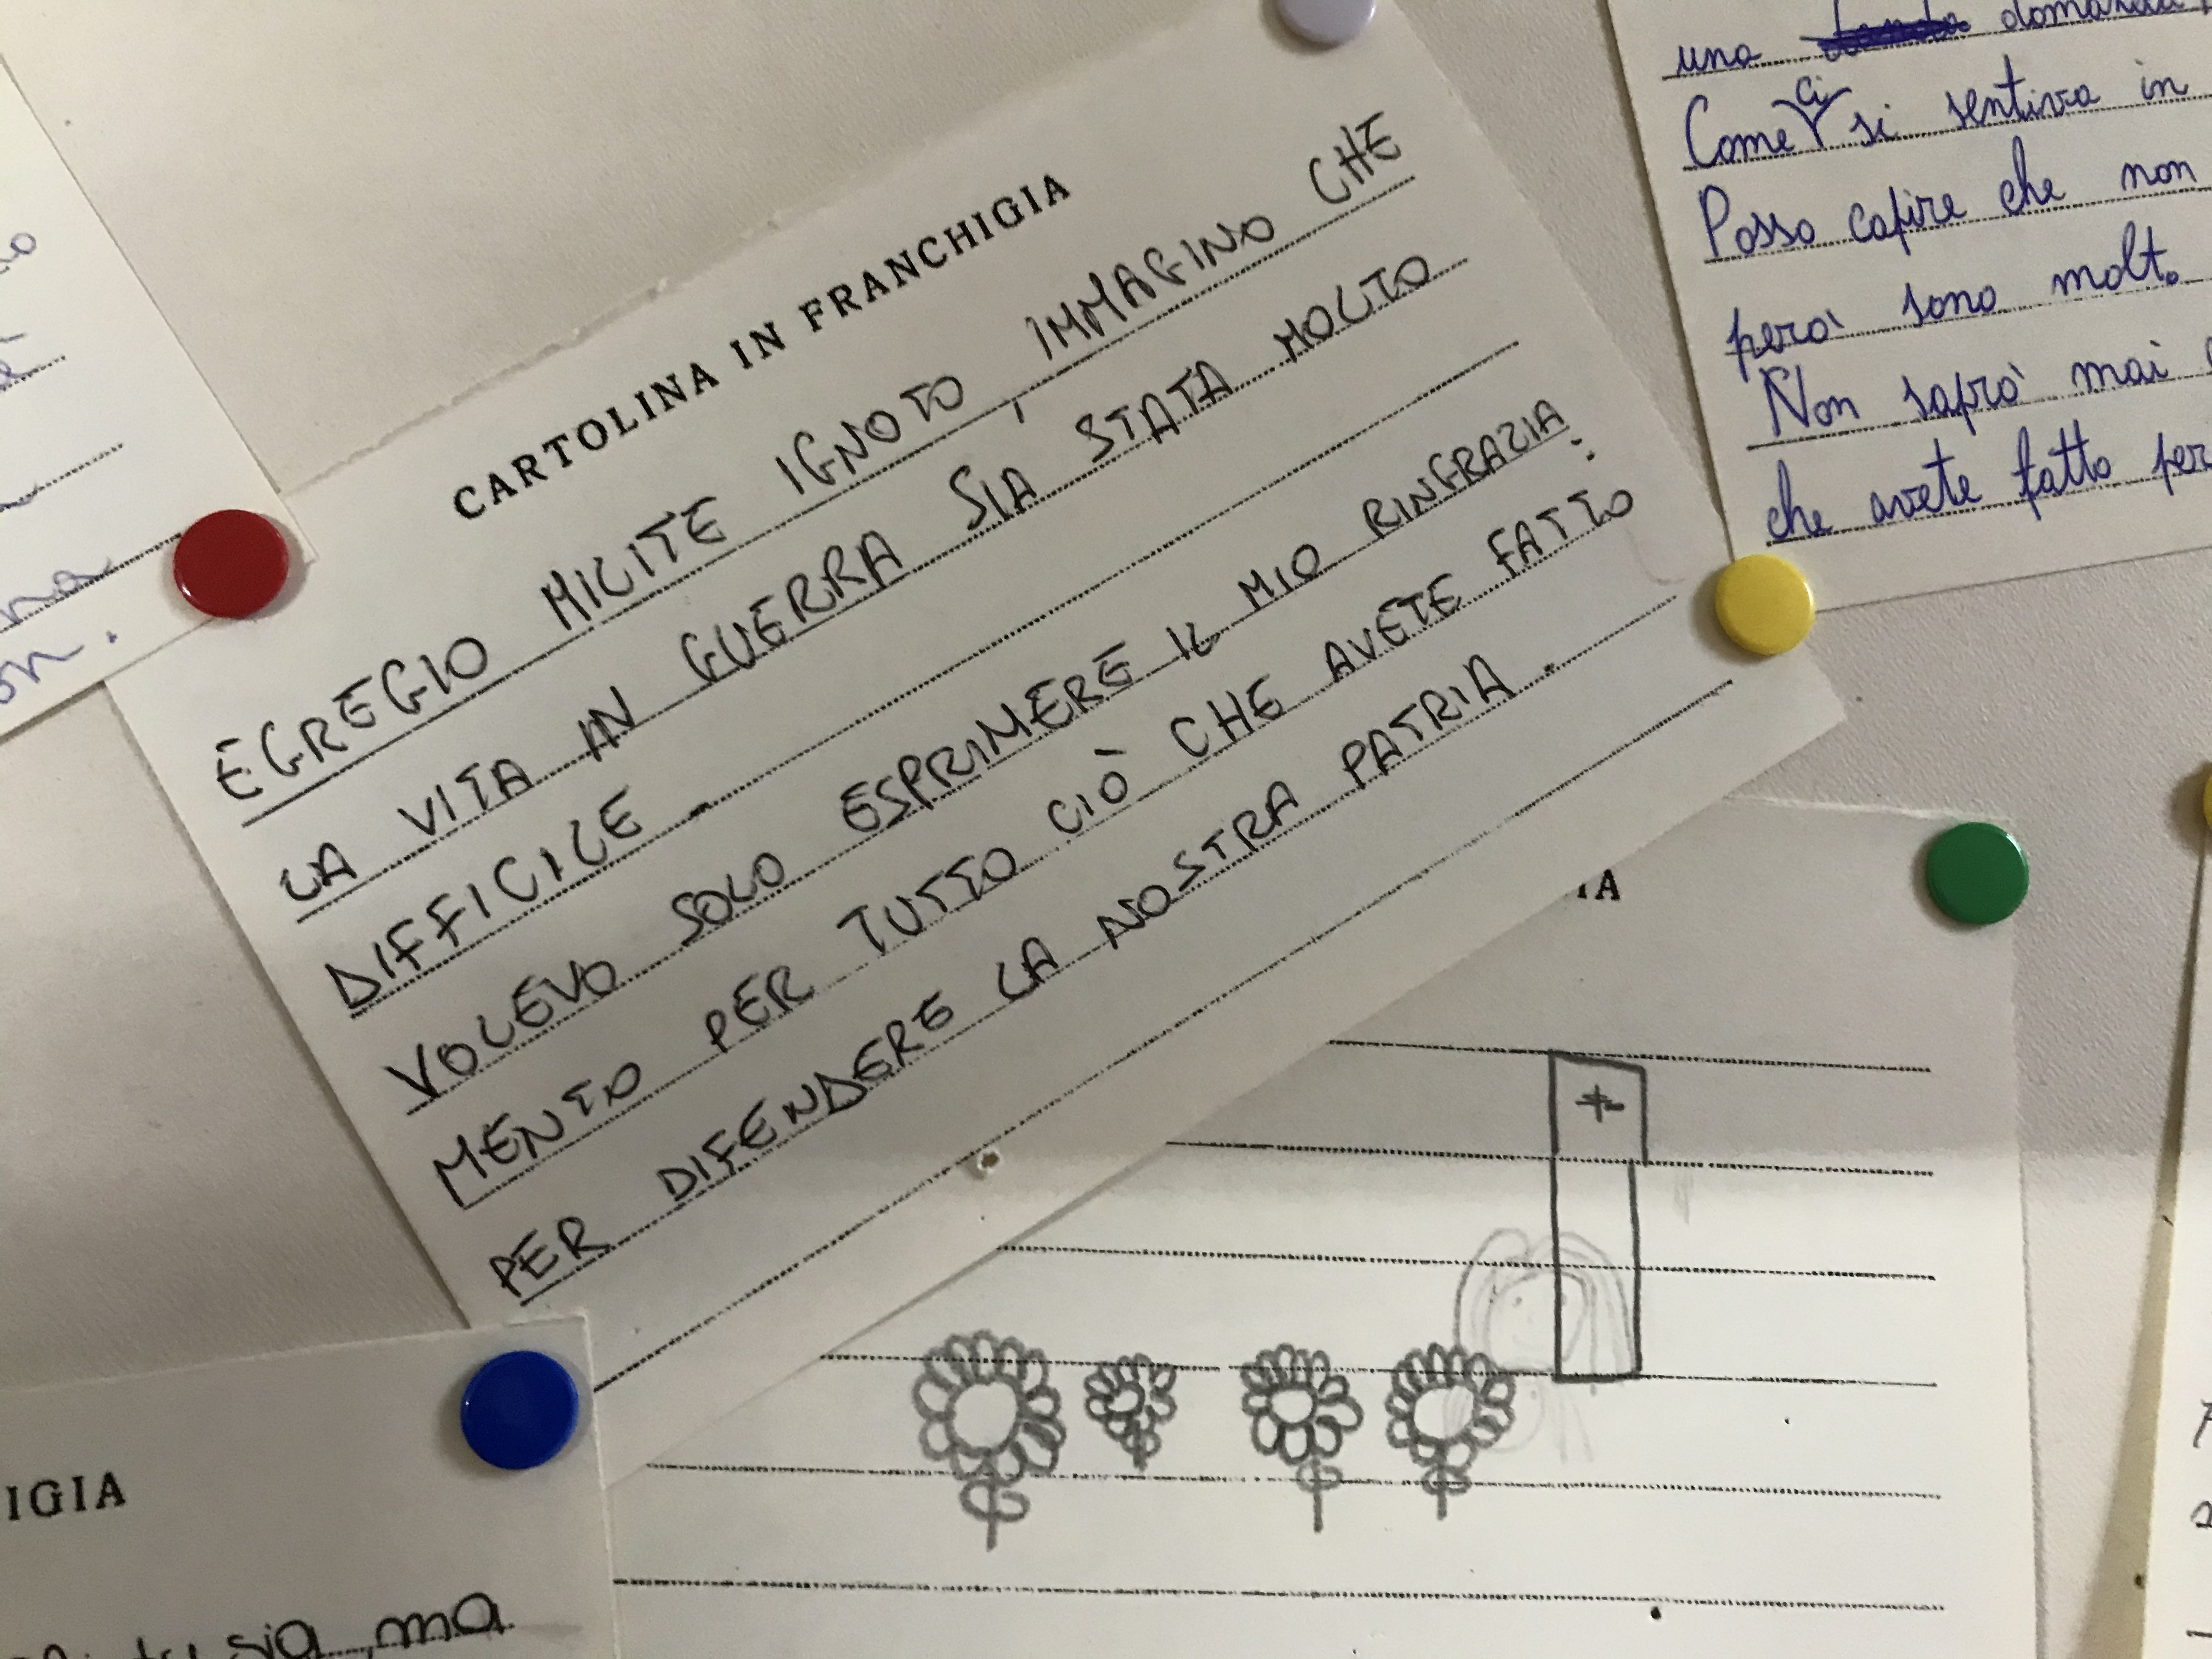 CARTOLINA IN FRANCHIGIA
EGREGIO MILITE IGNOTO, IMMAGINO CHE
LA VITA IN GUERRA SIA STATA MOLTO
DIFFICILE.
VOLEVO SOLO ESPRIMERE IL MIO RINGRAZIA:
MENTO PER TUTTO CIÒ CHE AVETE FATTO
PER DIFENDERE LA NOSTRA PATRIA.
una domanda
Come ci si sentiva in
Posso capire che non
però sono molto
Non saprò mai
che avete fatto per
IA
IGIA
sia, ma